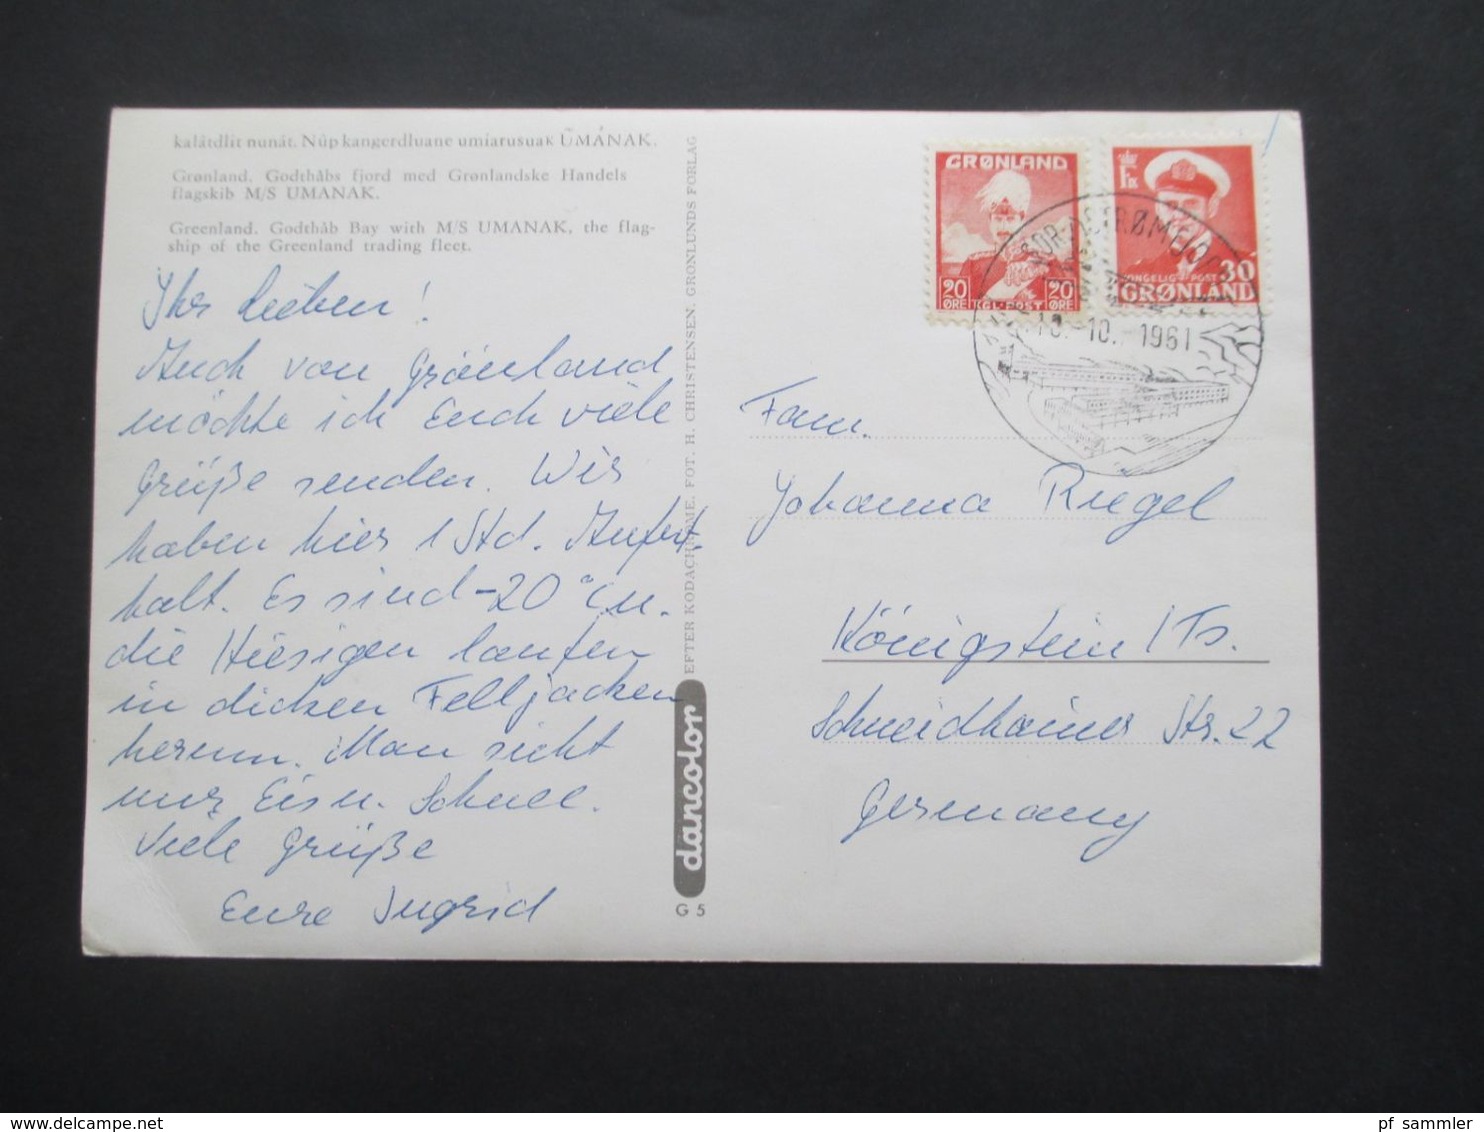 kalâtdlit nunât. Nûp kangerdluane umiarusuak ŪMÁNAK.
Grønland. Godthåbs fjord med Grønlandske Handels
flagskib M/S UMANAK.
Greenland. Godthåb Bay with M/S UMANAK, the flag-
ship of the Greenland trading fleet.
Ihr Lieben!
Auch von Grönland
möchte ich Euch viele
Grüße senden. Wir
haben hier 1 Std. Aufent-
halt. Es sind -20° u.
die Hiesigen laufen
in dicken Felljacken
herum. Man sieht
nur Eis u. Schnee.
Viele Grüße
Eure Ingrid
EFTER KODACHROME. FOT. H. CHRISTENSEN. GRØNLUNDS FORLAG
dancolor
G 5
GRØNLAND
20 ØRE
KGL. POST
20 ØRE
30
GRØNLAND
STRØMFJORD
10. 1961
Fam.
Johanna Riegel
Königstein / Ts.
Schneidhainer Str. 22
Germany
pf_sammler